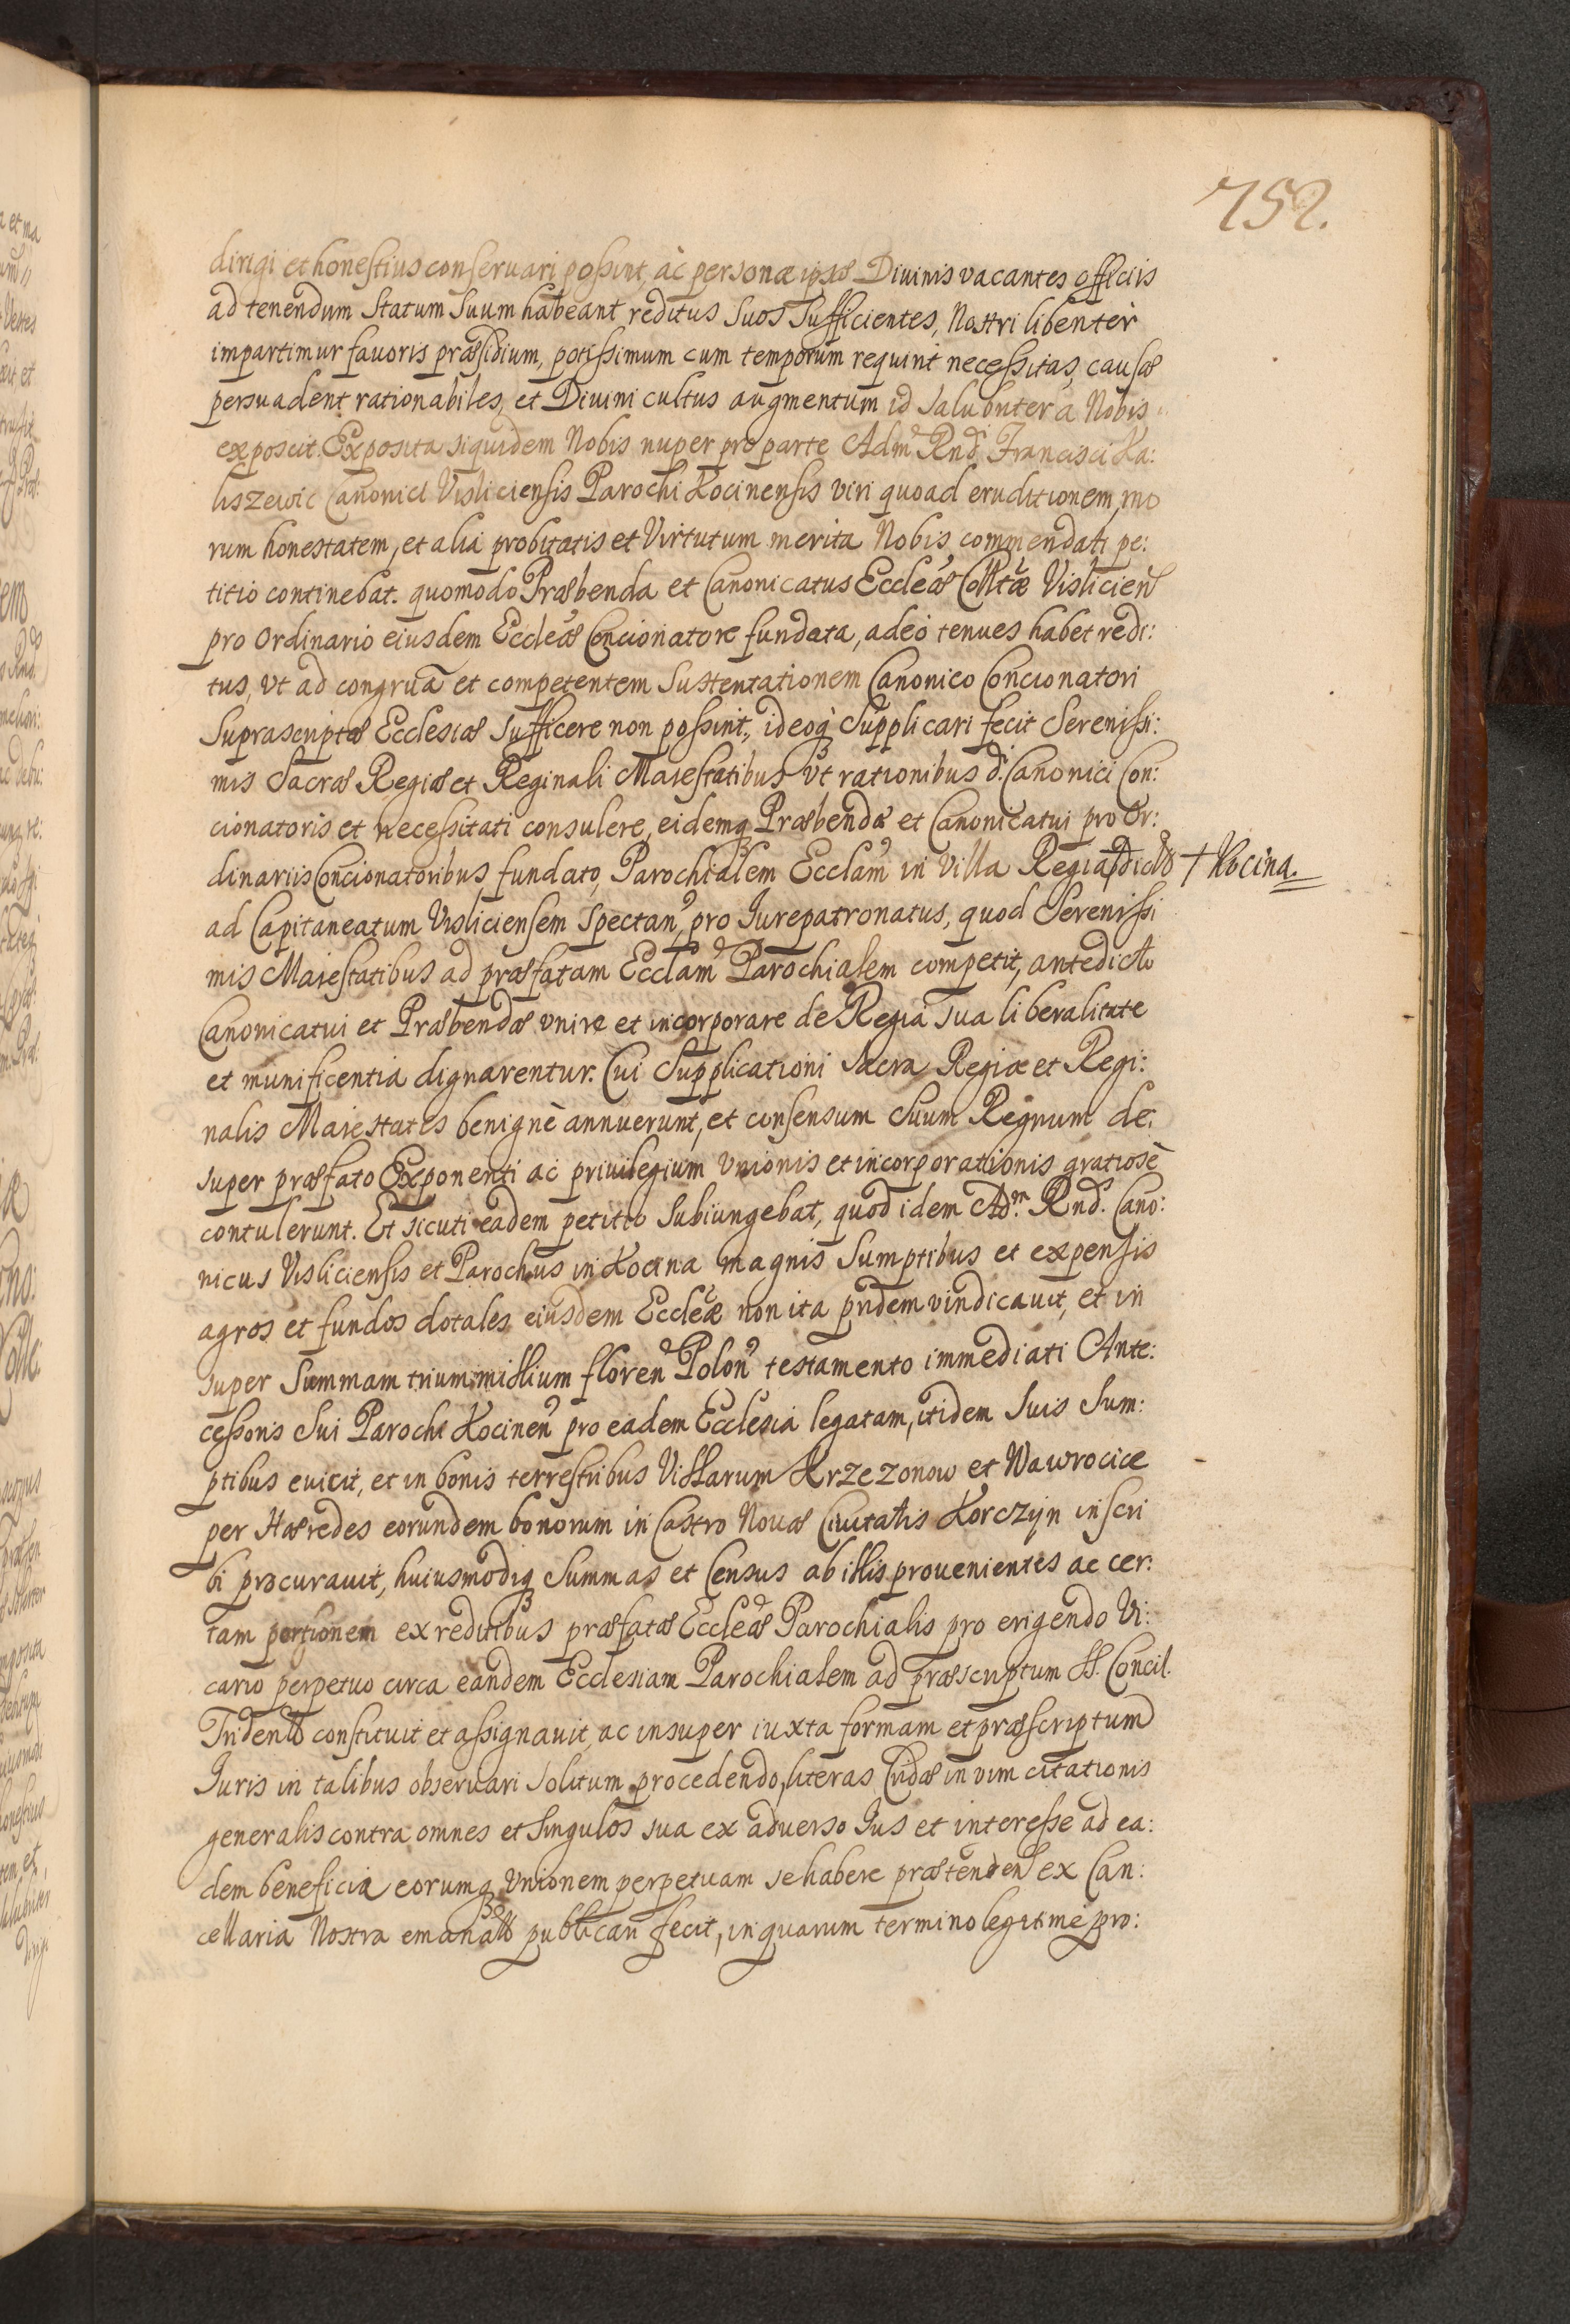 752.
dirigi et honestius conseruari possint, àc personæ ipsæ Diuinis vacantes officiis
ad tenendum Statum Suum habeant reditus Suos Sufficientes, Nostri libentèr
impartimur fauoris præsidium, potissimum cum temporum requirit necessitas, causæ
persuadent rationabiles, et Diuini cultus augmentum id salubriter à Nobis
exposcit. Exposita siquidem Nobis nuper pro parte Adm Rndi Francisci Ka:
liszewic Canonici Visliciensis Parochi Kocinensis viri quoad eruditionem, mo
rum honestatem, et alia probitatis et Virtutum merita Nobis commendati pe:
titio continebat. quomodo Præbenda et Canonicatus Eccleæ Colltæ Vislicien
pro Ordinario eiusdem Eccleæ Concionatore fundata, adeò tenues habet redi:
tus, vt ad congruã et competentem Sustentationem Canonico Concionatori
Suprascriptæ Ecclesiæ Sufficere non possint, ideoq Supplicari fecit Serenissi:
mis Sacræ Regiæ et Reginali Maiestatibus vt rationibus d. Canonici Con:
cionatoris et necessitati consulere, eidemq Præbendæ et Canonicatui pro Or:
dinariis Concionatoribus fundato, Parochialem Ecclam in Villa Regia dicta † Kocina.
ad Capitaneatum Visliciensem Spectan, pro Iurepatronatus, quod Serenissi
mis Maiestatibus ad præfatam Ecclam Parochialem competit, antedicto
Canonicatui et Præbendæ vnire et incorporare de Regia sua liberalitate
et munificentia dignarentur. Cui Supplicationi Sacra Regiæ et Regi:
nalis Maiestates benignè annuerunt, et consensum Suum Regium de:
super præfato Exponenti ac priuilegium Vnionis et incorporationis gratiosè
contulerunt. Et sicuti eadem petitio Subiungebat, quod idem Adm. Rnd. Cano:
nicus Visliciensis et Parochus in Kocina magnis Sumptibus et expensis
agros et fundos dotales eiusdem Eccleæ non ita pridem vindicauit, et in
super Summam trium millium floren Polon testamento immediati Ante:
cessoris Sui Parochi Kocinen pro eadem Ecclesia legatam, itidem Suis Sum:
ptibus euicit, et in bonis terrestribus Villarum Krzezonow et Wawrocice
per Hæredes eorundem bonorum in Castro Nouæ Ciuitatis Korczyn inscri
bi procurauit, huiusmodiq Summas et Census ab illis prouenientes ac cer:
tam portionem ex reditibus præfatæ Eccleæ Parochialis pro erigendo Vi:
cario perpetuo circa eandem Ecclesiam Parochialem ad præscriptum SS. Concil.
Trident constituit et assignauit, ac insuper iuxta formam et præscriptum
Iuris in talibus obseruari Solitum procedendo, literas Cridæ in vim citationis
generalis contra omnes et Singulos sua ex aduerso Ius et interesse ad ea:
dem beneficia eorumq Vnionem perpetuam se habere prætenden ex Can:
cellaria Nostra emanat publicari fecit, in quarum termino legitimè pro: